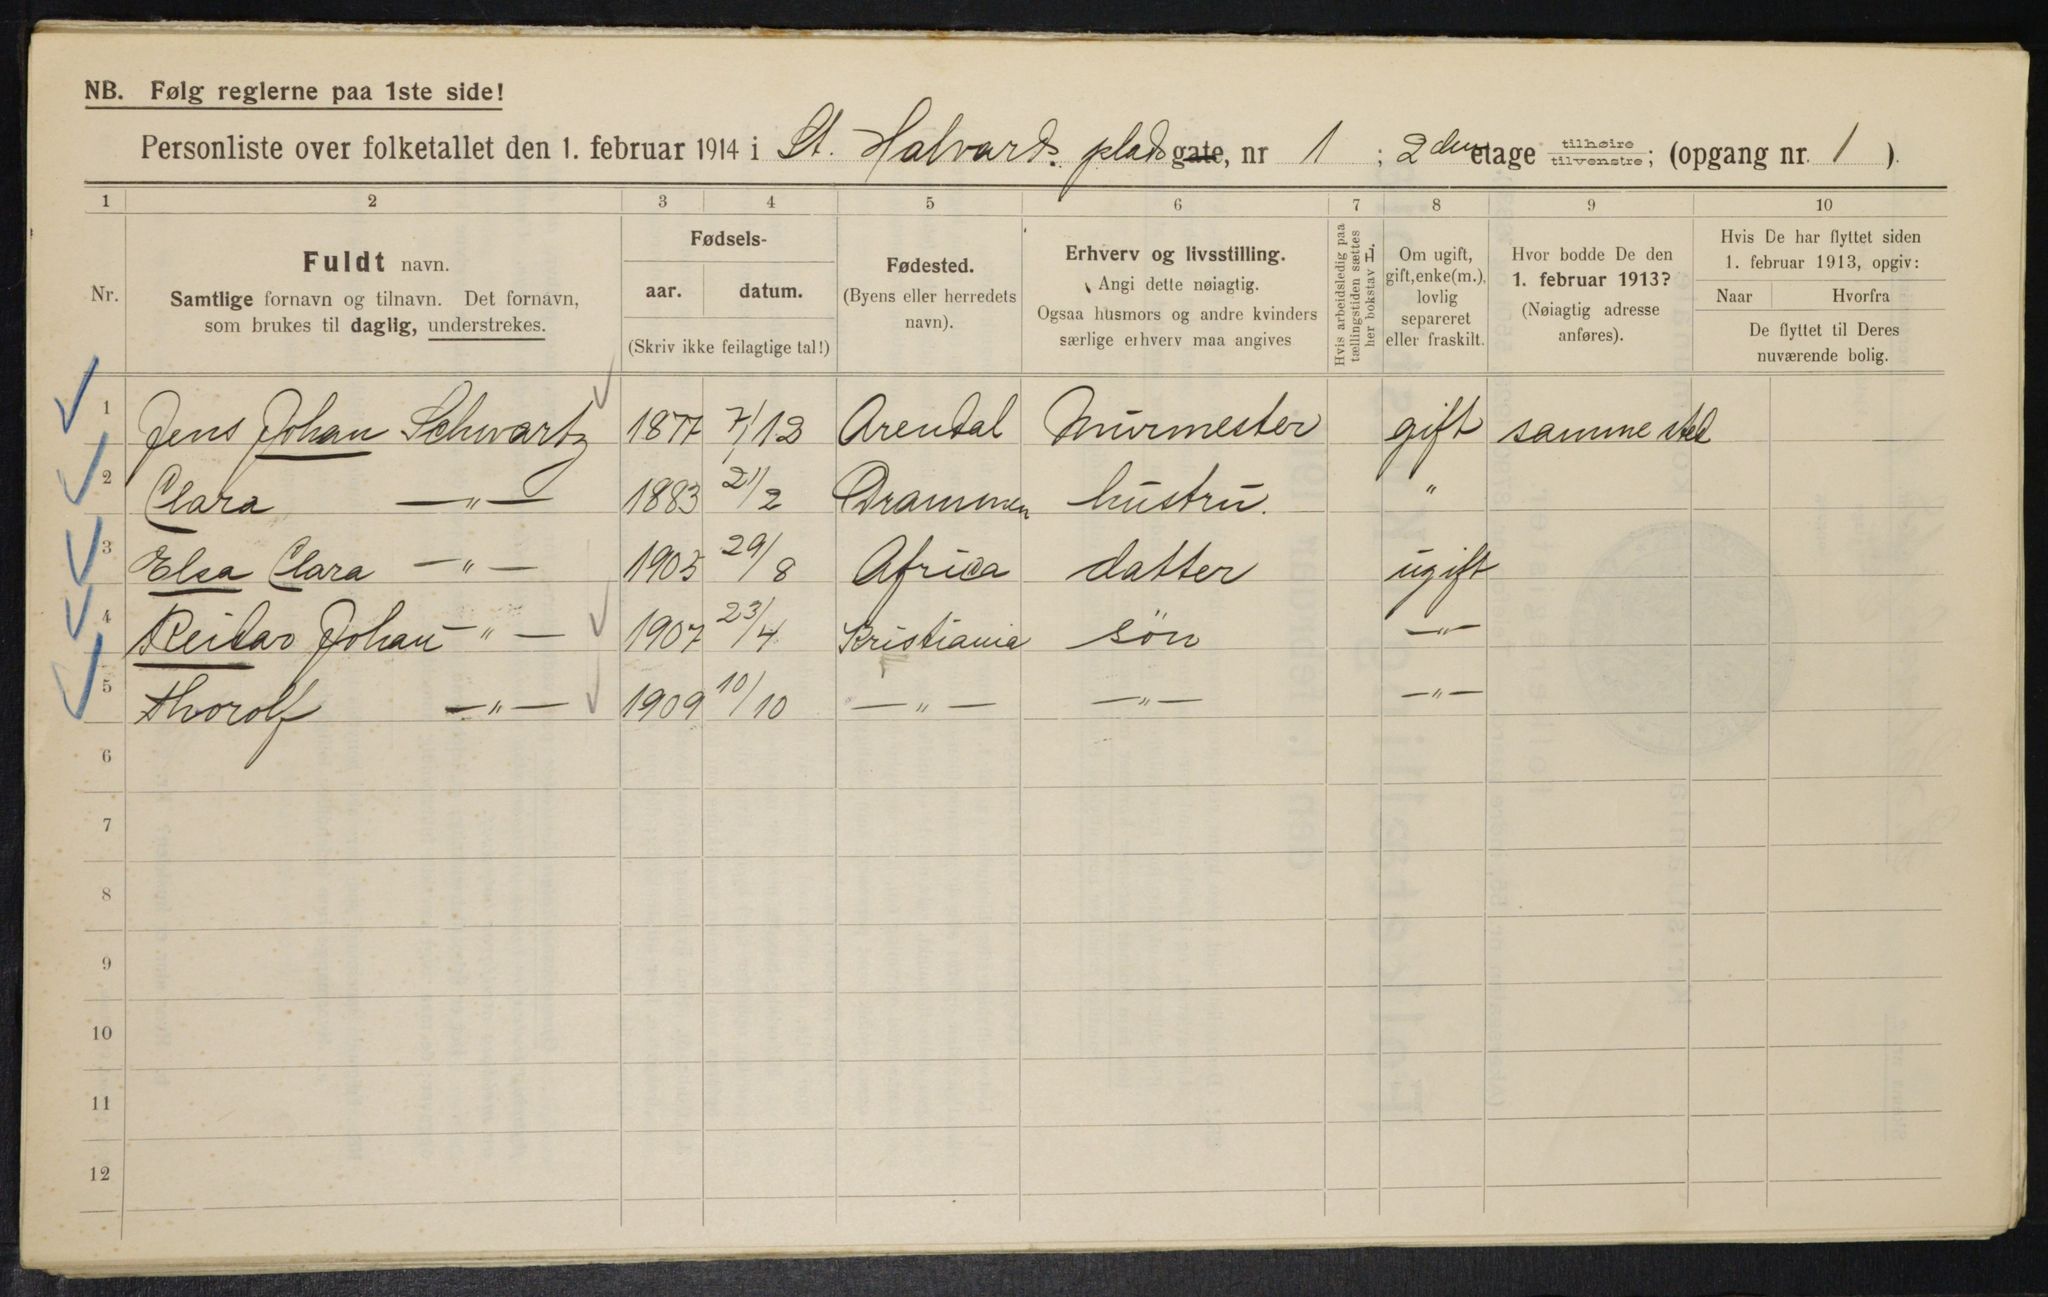 NB. Følg reglerne paa 1ste side!
Personliste over folketallet den 1. februar 1914 i St. Halvards. plads gate, nr 1 ; 2den etage tilhøire tilvenstre; (opgang nr. 1 ).
1 2 3 4 5 6 7 8 9 10
Nr.
Fuldt navn.
Samtlige fornavn og tilnavn. Det fornavn,
som brukes til daglig, understrekes.
Fødsels-
aar. datum.
(Skriv ikke feilagtige tal!)
Fødested.
(Byens eller herredets
navn).
Erhverv og livsstilling.
Angi dette nøiagtig.
Ogsaa husmors og andre kvinders
særlige erhverv maa angives
Hvis arbeidsledig paa
tællingstiden sættes
her bokstav L.
Om ugift,
gift, enke(m.),
lovlig
separeret
eller fraskilt.
Hvor bodde De den
1. februar 1913?
(Nøiagtig adresse
anføres).
Hvis De har flyttet siden
1. februar 1913, opgiv:
Naar Hvorfra
De flyttet til Deres
nuværende bolig.
1 Jens Johan Schwartz 1877 7/12 Arendal Murmester gift samme sted
2 Clara —"— 1883 21/2 Drammen hustru. "
3 Elsa Clara —"— 1905 29/8 Africa datter ugift
4 Reidar Johan —"— 1907 23/4 Kristiania søn —"—
5 Thorolf —"— 1909 10/10 —"— —"— —"—
6
7
8
9
10
11
12